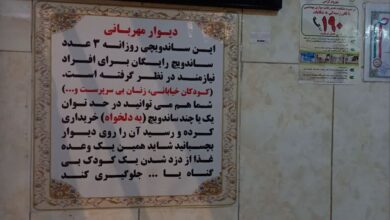 دیوار مهربانی
این ساندویچی روزانه ۳ عدد
ساندویچ رایگان برای افراد
نیازمند در نظر گرفته است.
(کودکان خیابانی، زنان بی سرپرست و...)
شما هم می توانید در حد توان
یک یا چند ساندویچ (به دلخواه) خریداری
کرده و رسید آن را روی دیوار
بچسبانید شاید همین یک وعده
غذا از دزد شدن یک کودک بی
گناه یا ... جلوگیری کند
۱۹۰